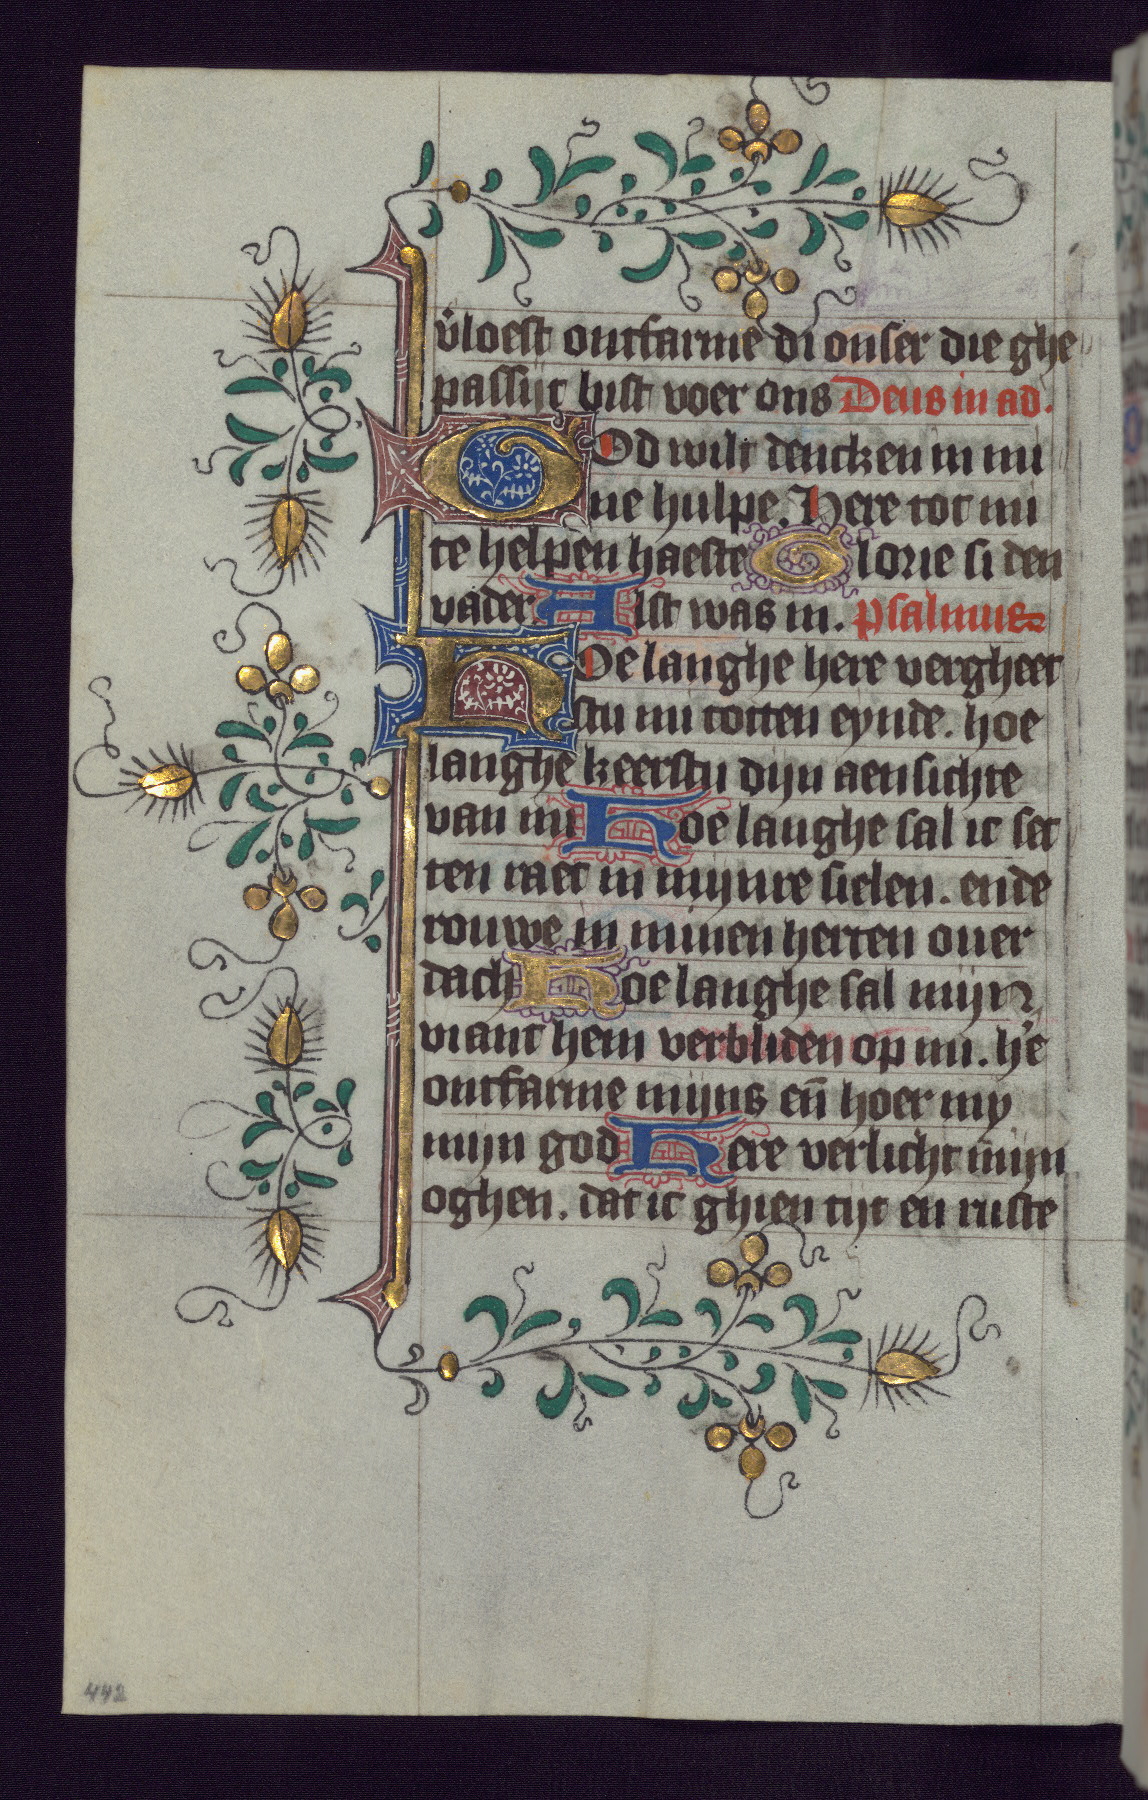 v̾loest ontfarme di onser die ghe
passijt bist voer ons Deus in ad.
GOd wilt dencken in mi
ne hulpe. Here tot mi
te helpen haeste Glorie si den
vader. Alst was in. psalmus
HOe langhe here vergheet
stu mi totten eynde. hoe
langhe keerstu dijn aensichte
van mi Hoe langhe sal ic set
ten raet in mijnre sielen. ende
rouwe in minen herten ouer
dach Hoe langhe sal mijn
viant hem verbliden op mi. he̾
ontfarme mijns en̄ hoer my
mijn god Here verlicht mijn
oghen. dat ic ghien tijt en ruste
442